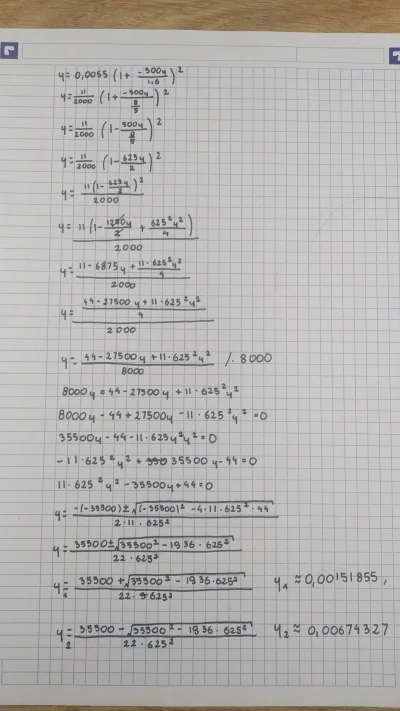 y = 0,0055 (1 + \frac{-500y}{1,6})^2
y = \frac{11}{2000} (1 + \frac{-500y}{\frac{8}{5}})^2
y = \frac{11}{2000} (1 - \frac{500y}{\frac{8}{5}})^2
y = \frac{11}{2000} (1 - \frac{625y}{2})^2
y = \frac{11(1 - \frac{625y}{2})^2}{2000}
y = \frac{11(1 - \frac{1250y}{2} + \frac{625^2y^2}{4})}{2000}
y = \frac{11 - 6875y + \frac{11·625^2y^2}{4}}{2000}
y = \frac{\frac{44 - 27500y + 11·625^2y^2}{4}}{2000}
y = \frac{44 - 27500y + 11·625^2y^2}{8000} /·8000
8000y = 44 - 27500y + 11·625^2y^2
8000y - 44 + 27500y - 11·625^2y^2 = 0
35500y - 44 - 11·625y^2y^2 = 0
-11·625^2y^2 + 35500y - 44 = 0
11·625^2y^2 - 35500y + 44 = 0
y = \frac{-(-35500) ± \sqrt{(-35500)^2 - 4·11·625^2·44}}{2·11·625^2}
y = \frac{35500 ± \sqrt{35500^2 - 1936·625^2}}{22·625^2}
y_1 = \frac{35500 + \sqrt{35500^2 - 1936·625^2}}{22·625^2} y_1 ≈ 0,00151855,
y_2 = \frac{35500 - \sqrt{35500^2 - 1936·625^2}}{22·625^2} y_2 ≈ 0,00674327